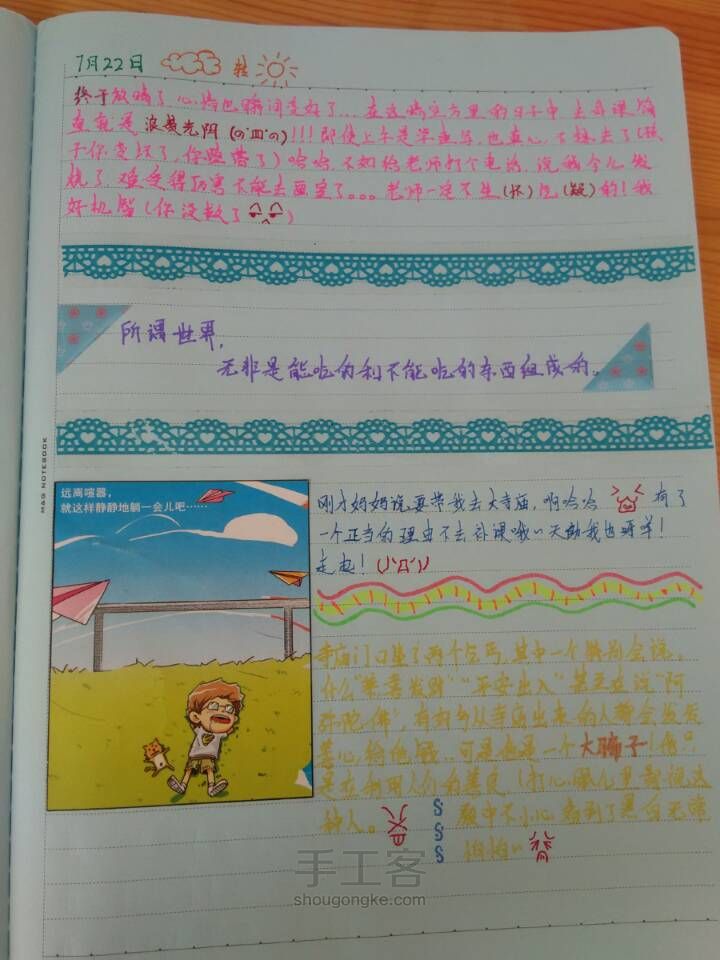 7月22日 转
终于放晴了心情也瞬间变好了...在这晴空万里的日子中去补课简
直就是浪费光阴( o'皿'o )!!!即使上午是学画等,也真心不想去了(孩
子你变坏了,你堕落了)哈哈,不如给老师打个电话,说我今儿发
烧了,难受得厉害不能去画室了。。。老师一定不生(怀)气(疑)的!我
好机智(你没救了)
所谓世界,
无非是能吃的和不能吃的东西组成的。
M&G NOTEBOOK
远离喧嚣,
就这样静静地躺一会儿吧……
刚才妈妈说要带我去大寺庙,啊哈哈 有了
一个正当的理由不去补课哦~天助我也呀咩!
走起!
寺庙门口坐了两个乞丐,其中一个特别会说,
什么“恭喜发财”“平安出入”甚至还说“阿
弥陀佛”,有好多从寺庙出来的人都会发发
善心,给他钱,可是他是一个大骗子!他
是在利用人们的善良,(打心眼儿里鄙视这
种人。 殿中不小心看到了黑白无常
怕怕~
手工客
shougongke.com